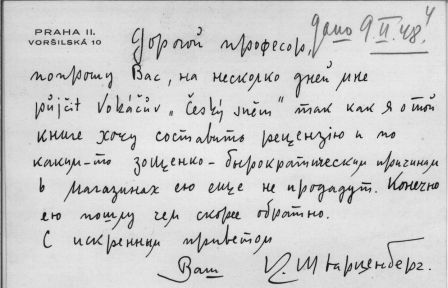 PRAHA II.
VORŠILSKÁ 10
дано 9.II.48.
Дорогой професор,
попрошу Вас, на несколко дней мне
půjčit Vokáčův „Český sněm" так как я о той
книге хочу составить рецензію и по
каким-то зощенко-бырократическим причинам
в магазинах ею еще не продадут. Конечно
ею пошлу чем скорее обратно.
С искренним приветом
Ваш К. Шварценберг.